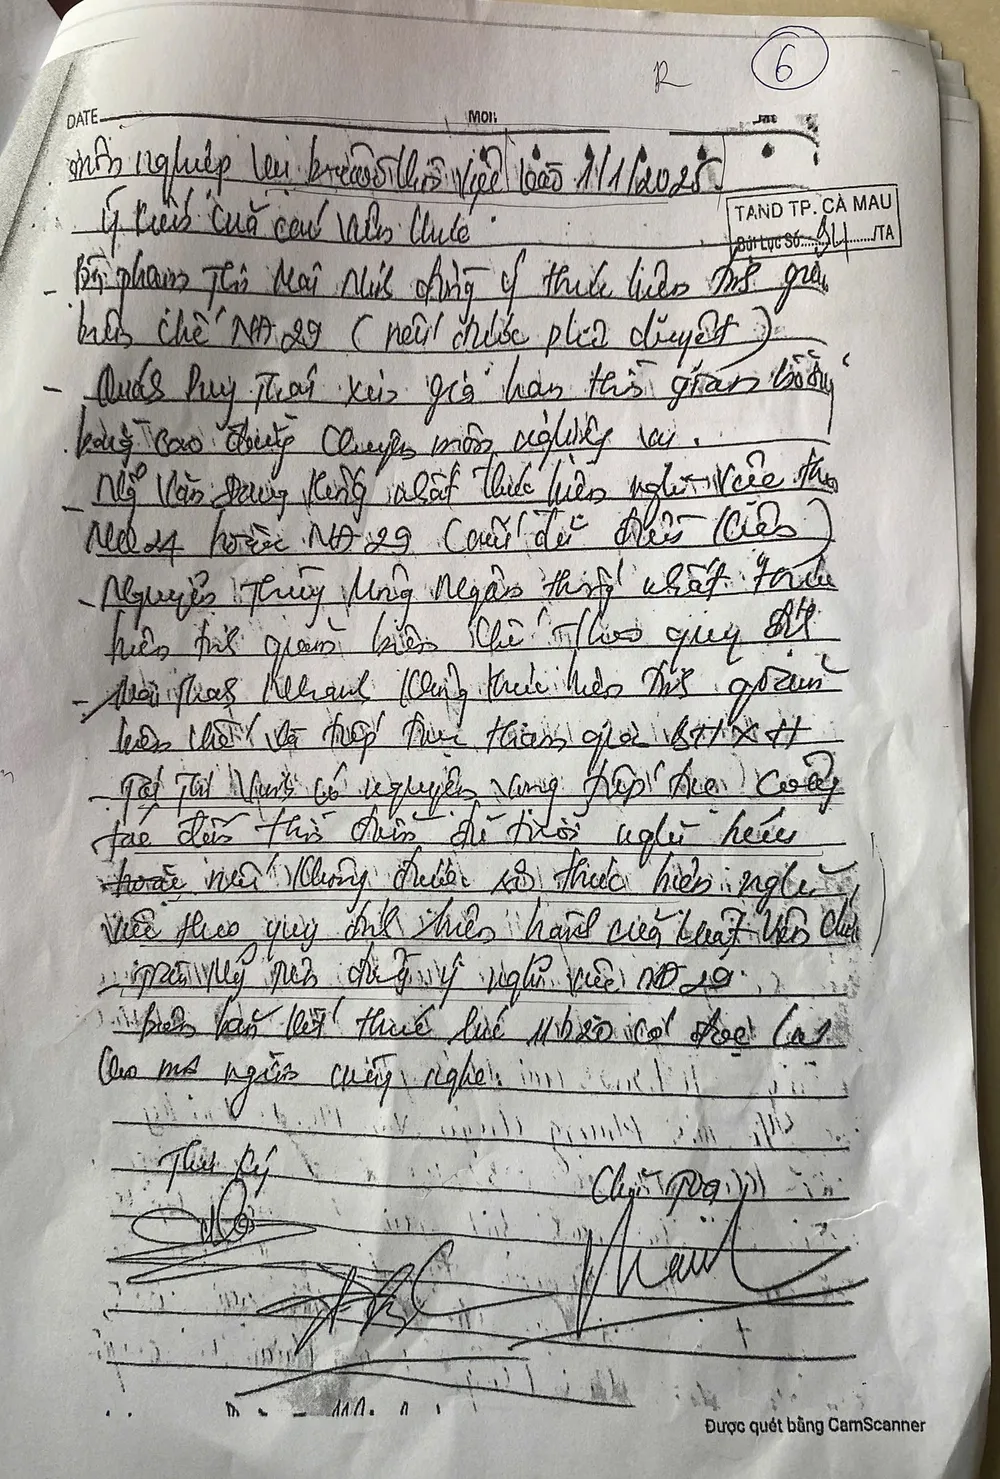 6
R
DATE MON
nghiệp vụ trước thời việc vào 1/1/2025.
TAND TP. CÀ MAU
Bút Lục Số...94..../TA
Ý kiến của các viên chức
- Bà phạm Thị Mai đồng ý thực hiện giản
biên chế NĐ 29 (nếu được phê duyệt)
- Quách Duy Thái xin gia hạn thời gian bổ sung
bằng cao đẳng chuyên môn nghiệp vụ.
- Ngô Văn thống nhất thực hiện nghỉ việc theo
NĐ 24 hoặc NĐ 29 (nếu đủ điều kiện)
- Nguyễn Thùy Mộng Ngân thống nhất thực
hiện tinh giản biên chế theo quy định
- Mai Khanh không thực hiện tinh giản
biên chế và tiếp tục tham gia BHXH
- có nguyện vọng tiếp tục công
tác đến thời điểm đủ tuổi nghỉ hưu
hoặc nếu không được thực hiện nghỉ
việc theo quy định hiện hành của Luật Viên Chức
- đồng ý nghỉ việc NĐ 29.
biên bản kết thúc lúc 11h20 có đọc lại
cho mọi người cùng nghe.
Thư ký
Chủ tọa
Được quét bằng CamScanner